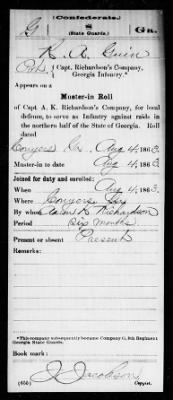 (Confederate.)
G
(State Guards.)
Ga.
R. A. Guin
Pvt., Capt. Richardson's Company,
Georgia Infantry.*
Appears on a
Muster-in Roll
of Capt. A. K. Richardson's Company, for local
defense, to serve as Infantry against raids in
the northern half of the State of Georgia. Roll
dated
Conyers Ga. Aug 4, 1863.
Muster-in to date Aug 4, 1863.
Joined for duty and enrolled:
When Aug 4, 1863.
Where Conyers Ga.
By whom K. Richardson
Period six months.
Present or absent Present
Remarks:
*This company subsequently became Company G, 9th Regiment
Georgia State Guards.
Book mark:
J. Jacobson
(650)
Copyist.